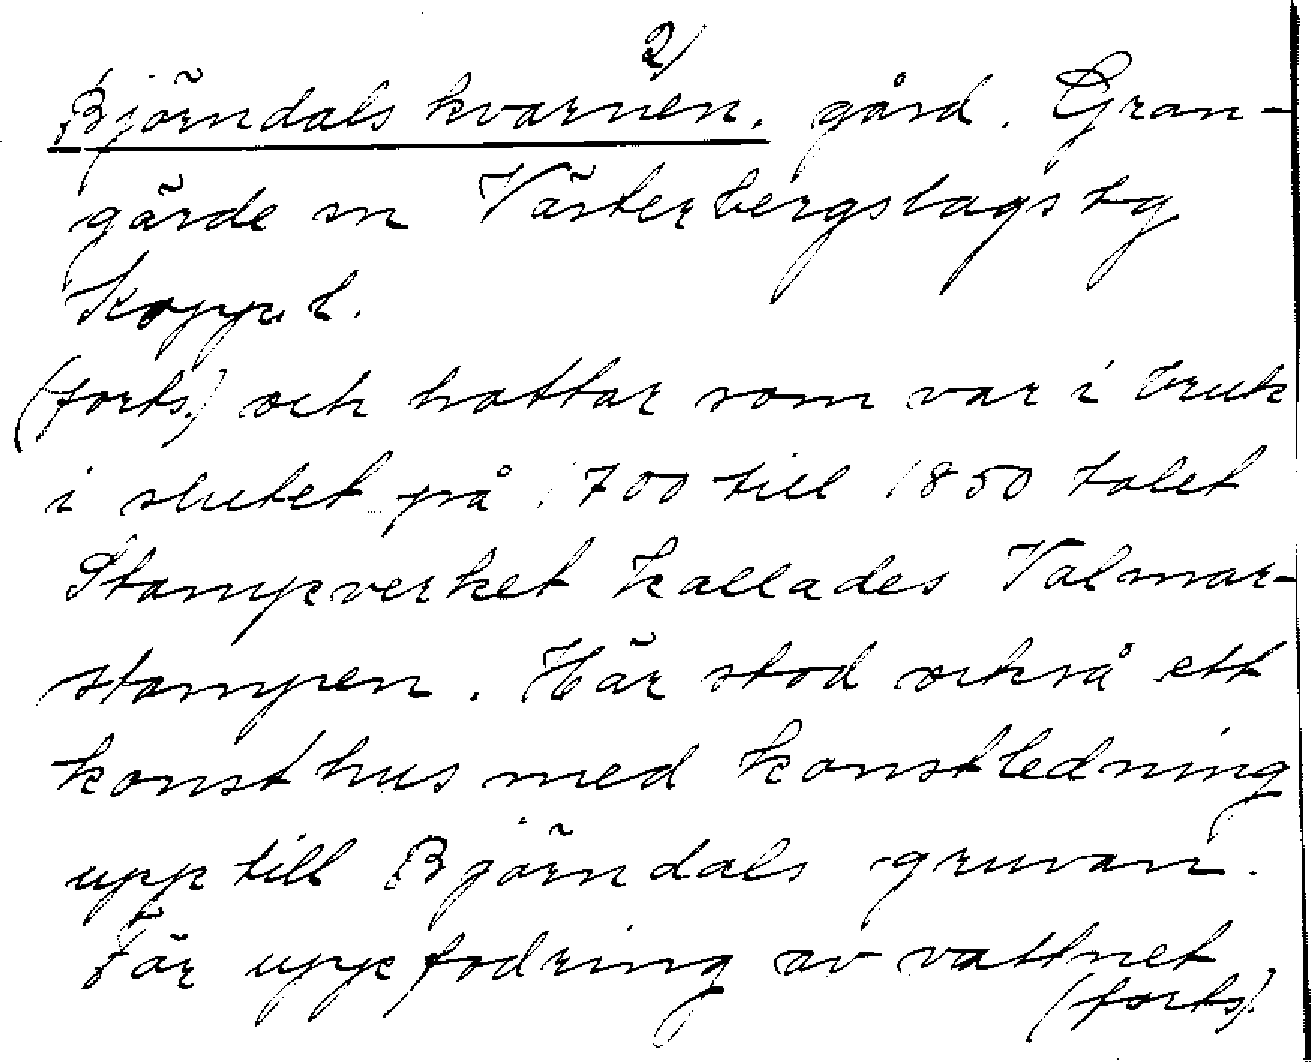 2)
Björndals kvarnen. gård. Gran-
gärde sn Västerbergslags tg
Koppub.
(forts.) och hattar som var i bruk
i slutet på 1700 till 1850 talet
Stampverket kallades Valmar-
stampen. Här stod också ett
konsthus med konstledning
upp till Björndals gruvan.
För uppfodring av vattnet
(forts).